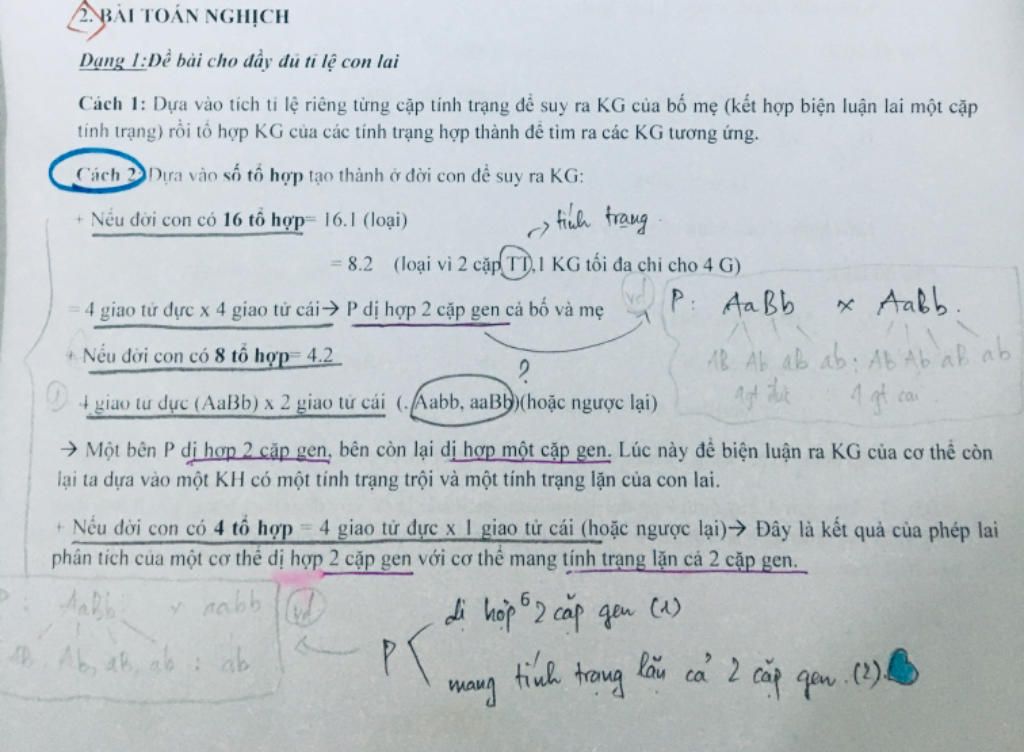 2. BÀI TOÁN NGHỊCH
Dạng 1:Đề bài cho đầy đủ tỉ lệ con lai
Cách 1: Dựa vào tích tỉ lệ riêng từng cặp tính trạng để suy ra KG của bố mẹ (kết hợp biện luận lai một cặp
tính trạng) rồi tổ hợp KG của các tính trạng hợp thành để tìm ra các KG tương ứng.
Cách 2: Dựa vào số tổ hợp tạo thành ở đời con để suy ra KG:
+ Nếu đời con có 16 tổ hợp= 16.1 (loại)
tính trạng
= 8.2 (loại vì 2 cặp TT,1 KG tối đa chỉ cho 4 G)
= 4 giao tử đực x 4 giao tử cái→ P dị hợp 2 cặp gen cả bố và mẹ
vd P: AaBb x AaBb.
+ Nếu đời con có 8 tổ hợp= 4.2
AB Ab aB ab : AB Ab aB ab
?
4 gt đực : 4 gt cái
① 4 giao tử đực (AaBb) x 2 giao tử cái (. Aabb, aaBb)(hoặc ngược lại)
→ Một bên P dị hợp 2 cặp gen, bên còn lại dị hợp một cặp gen. Lúc này để biện luận ra KG của cơ thể còn
lại ta dựa vào một KH có một tính trạng trội và một tính trạng lặn của con lai.
+ Nếu đời con có 4 tổ hợp = 4 giao tử đực x 1 giao tử cái (hoặc ngược lại)→ Đây là kết quả của phép lai
phân tích của một cơ thể dị hợp 2 cặp gen với cơ thể mang tính trạng lặn cả 2 cặp gen.
P: AaBb x aabb vd
AB, Ab, aB, ab : ab
P
dị hợp 2 cặp gen (1)
mang tính trạng lặn cả 2 cặp gen.(2).